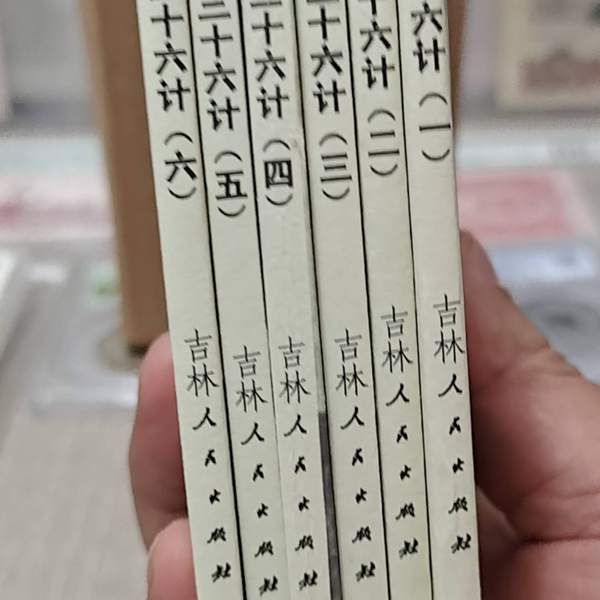 六计（一）
吉林人民出版社
十六计（二）
吉林人民出版社
十六计（三）
吉林人民出版社
十六计（四）
吉林人民出版社
三十六计（五）
吉林人民出版社
十六计（六）
吉林人民出版社